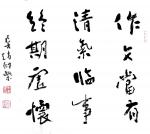 作文當有
清氣臨事
終期虛懷